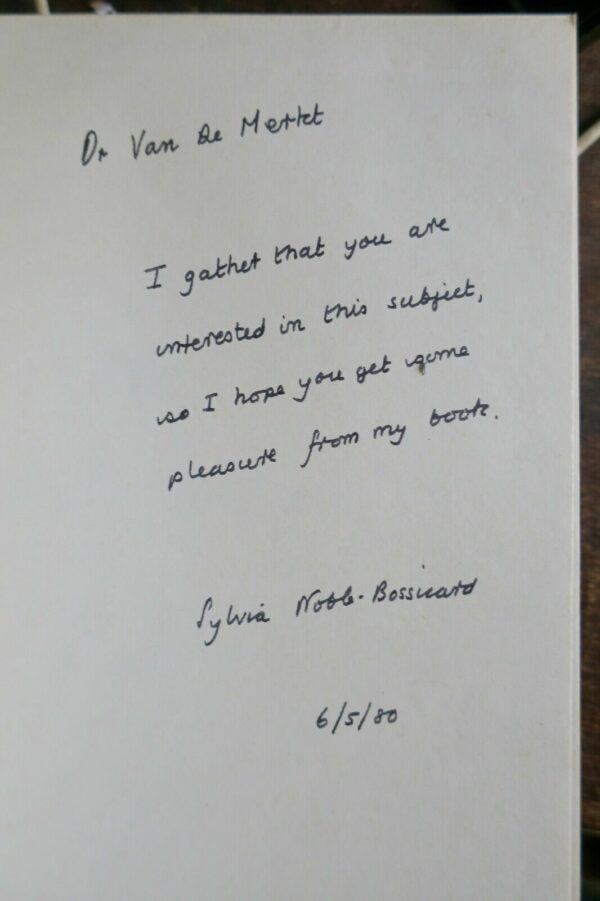 Dr Van De Merkt
I gather that you are
interested in this subject,
so I hope you get some
pleasure from my book.
Sylvia Noble-Bossicard
6/5/80